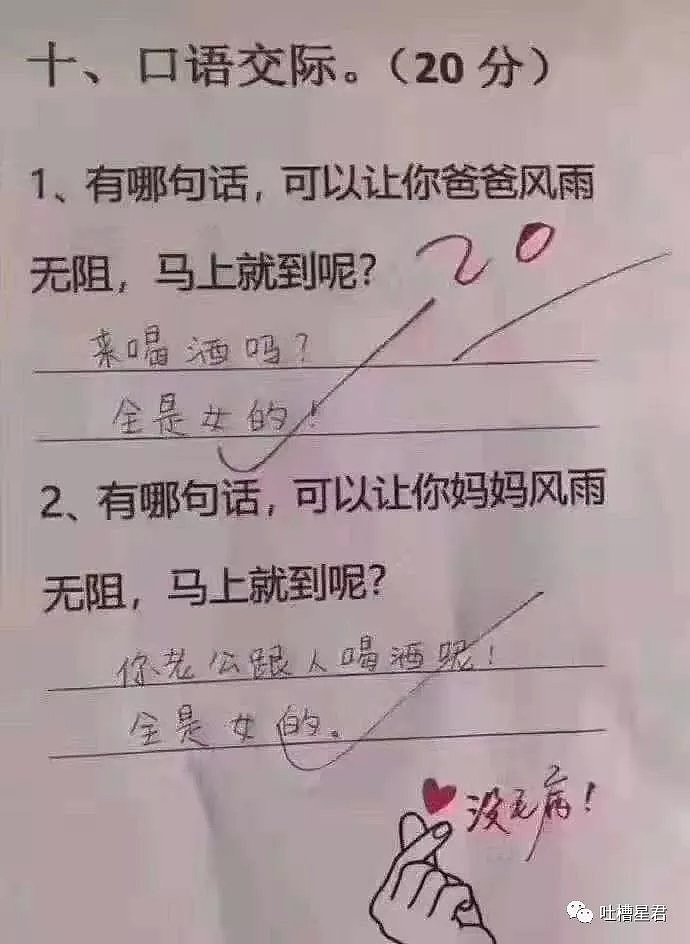 十、口语交际。（20 分）
1、有哪句话，可以让你爸爸风雨
无阻，马上就到呢？
20
来喝酒吗？
全是女的！
2、有哪句话，可以让你妈妈风雨
无阻，马上就到呢？
你老公跟人喝酒呢！
全是女的。
没毛病！
吐槽星君